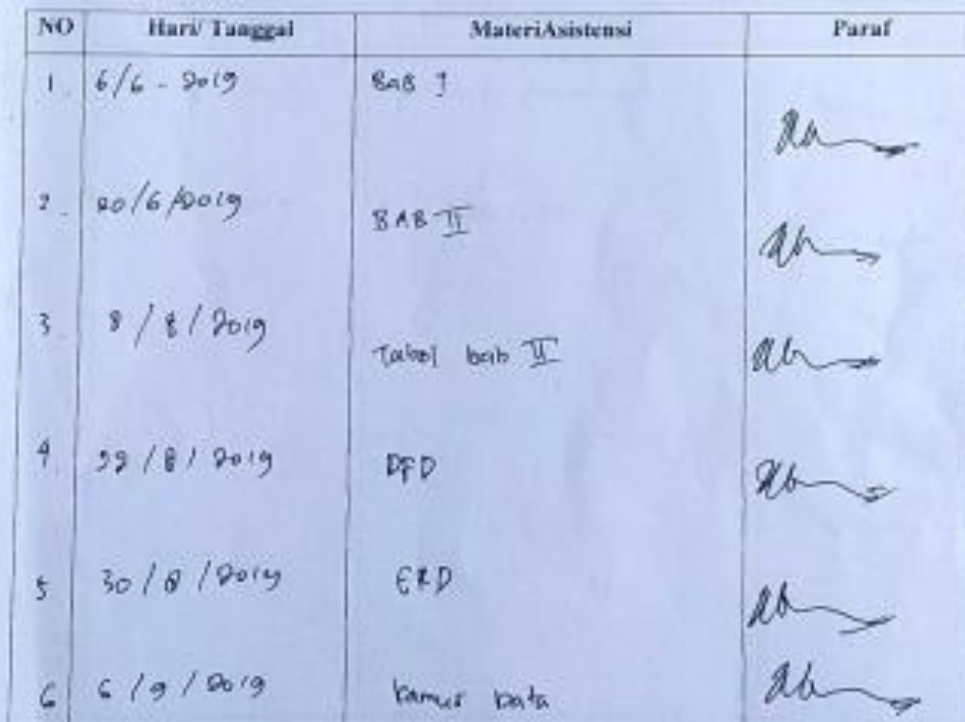 NO Hari/ Tanggal MateriAsistensi Paraf
1. 6/6 - 2019 BaB I
2. 20/6/2019 BAB II
3. 8/8/2019 Tabel bab II
4. 22/8/2019 DFD
5 30/8/2019 ERD
6 6/9/2019 kamus data